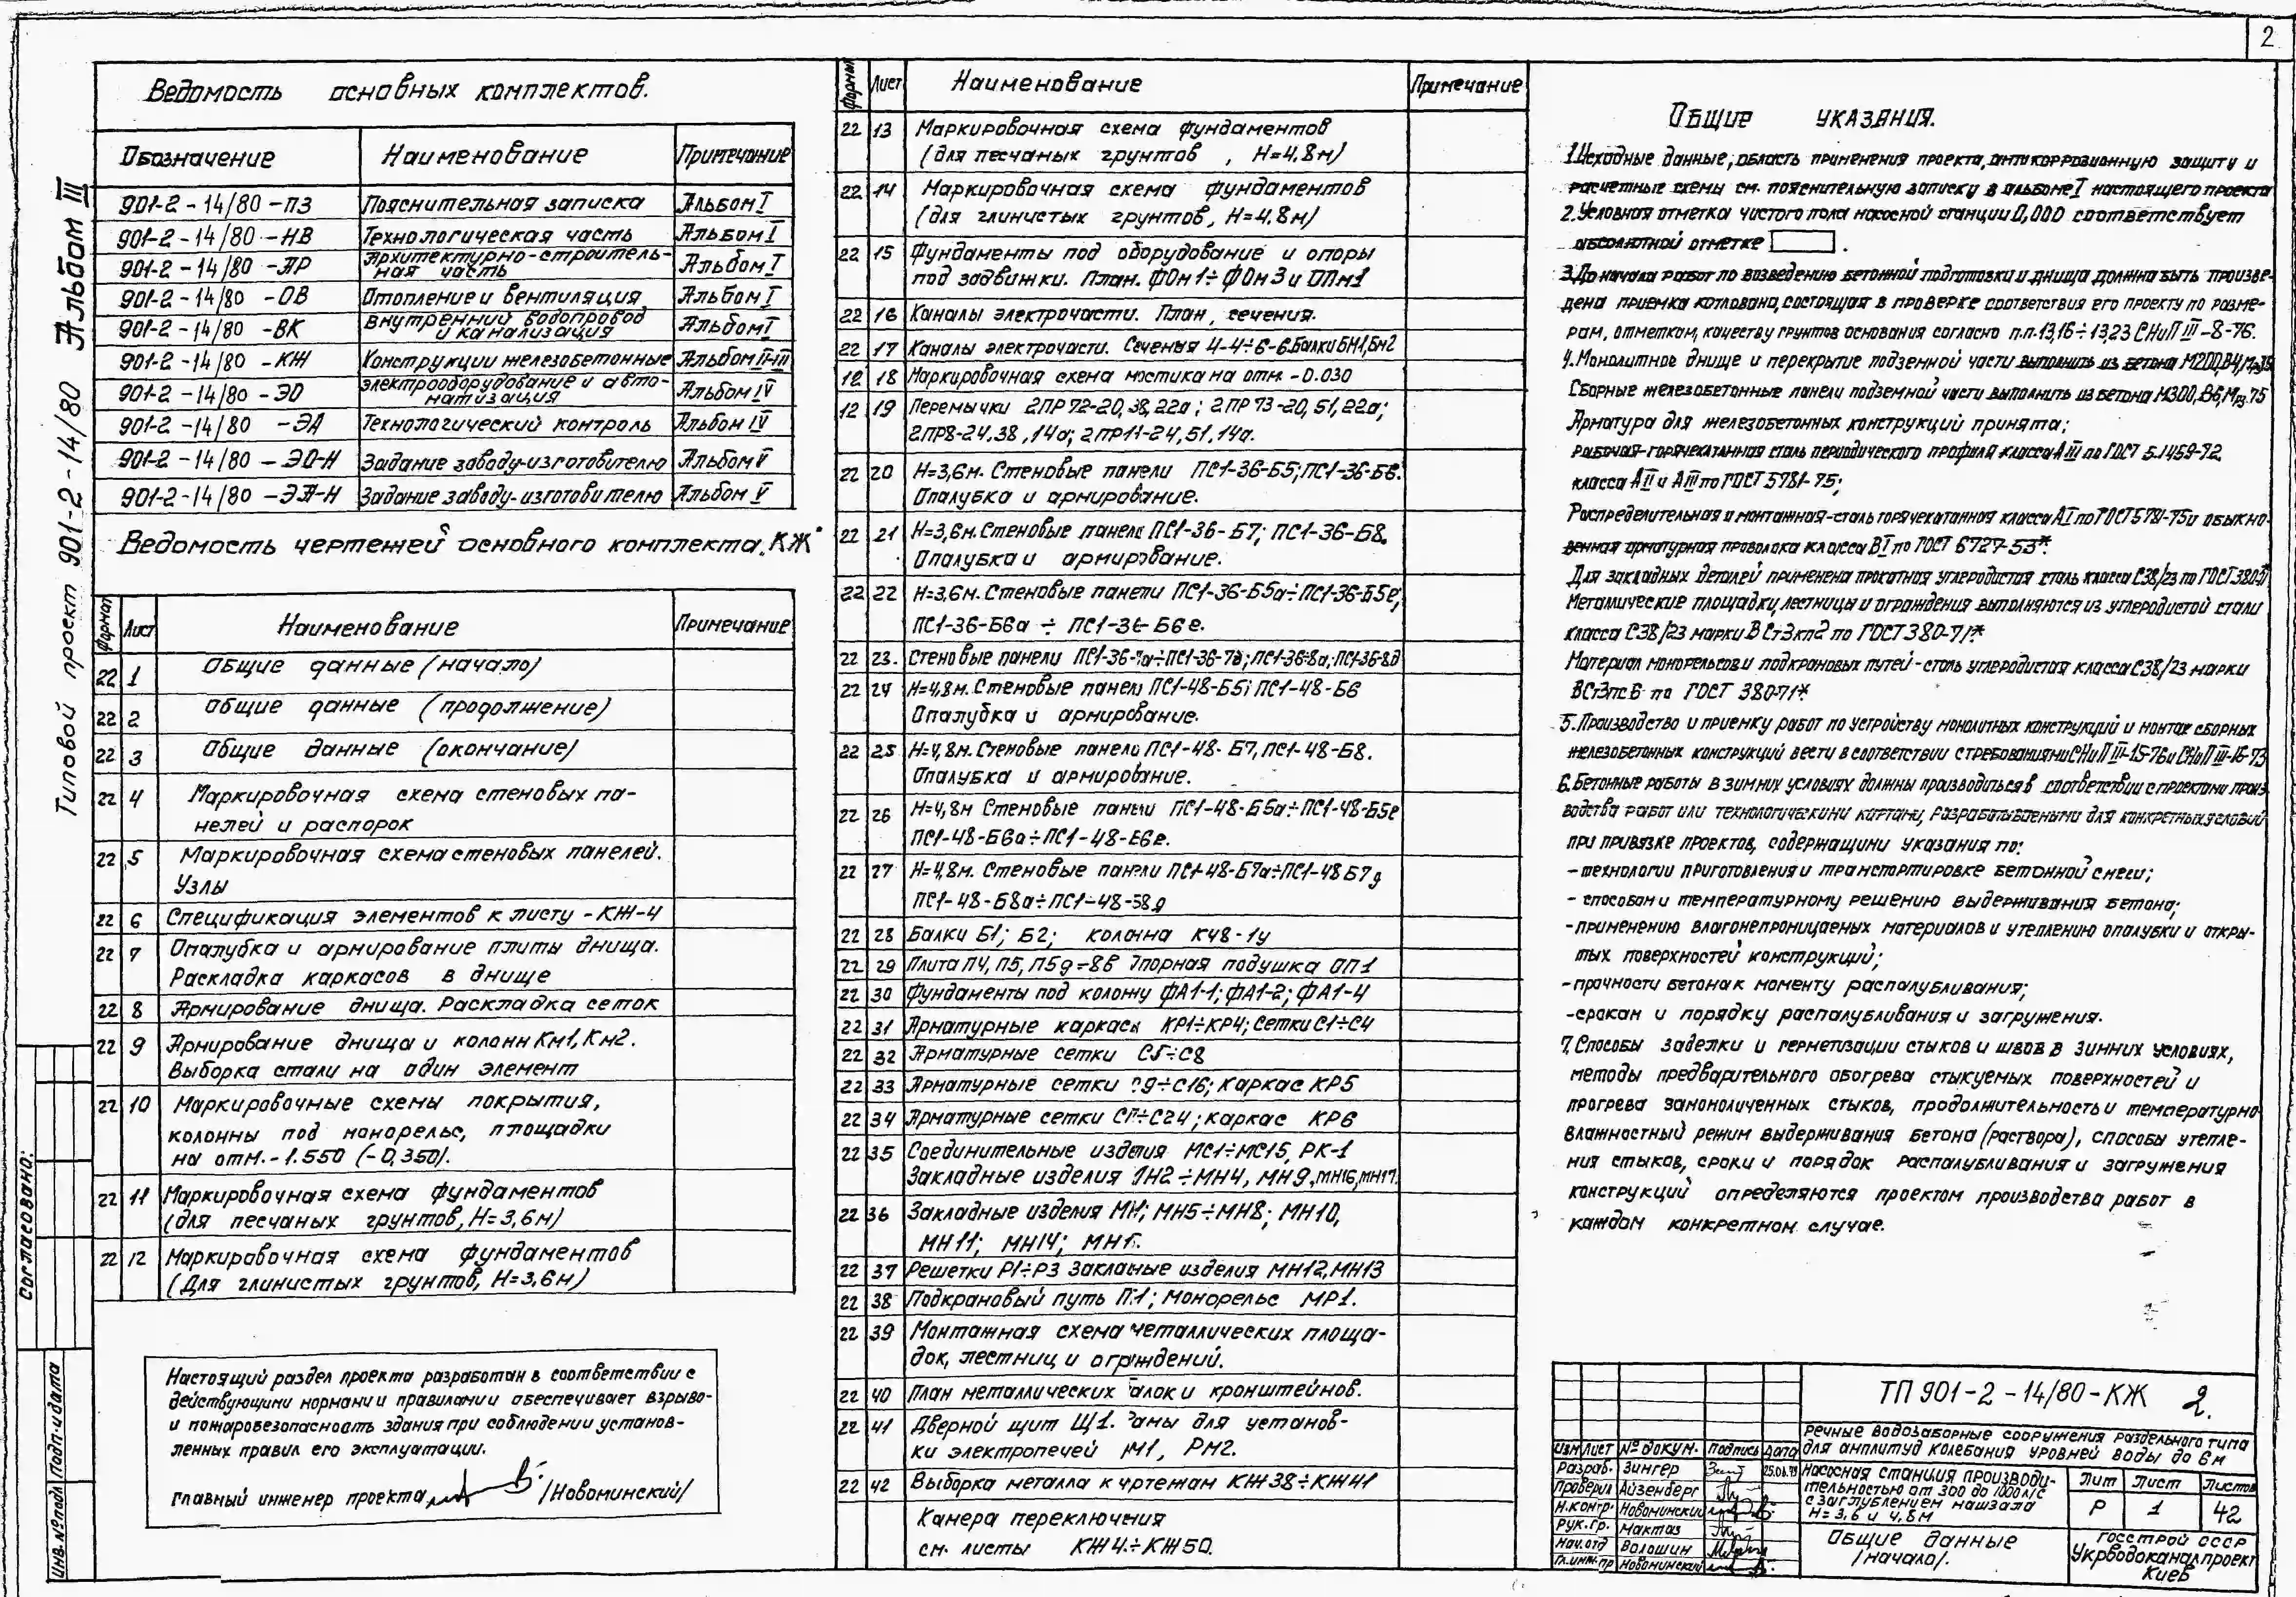 2
Типовой проект 901-2-14/80 Альбом III
Согласовано:
Инв.№подл Подп. и дата
Ведомость основных комплектов.
Обозначение Наименование Примечание
901-2-14/80-ПЗ Пояснительная записка Альбом I
901-2-14/80-НВ Технологическая часть Альбом I
901-2-14/80-АР Архитектурно-строитель-
ная часть Альбом I
901-2-14/80-ОВ Отопление и вентиляция Альбом I
901-2-14/80-ВК Внутренний водопровод
и канализация Альбом I
901-2-14/80-КЖ Конструкции железобетонные Альбом II-III
901-2-14/80-ЭО Электрооборудование и авто-
матизация Альбом IV
901-2-14/80-ЭА Технологический контроль Альбом IV
901-2-14/80-ЭО-Н Задание заводу-изготовителю Альбом V
901-2-14/80-ЭА-Н Задание заводу-изготовителю Альбом V
Ведомость чертежей основного комплекта КЖ
Формат Лист Наименование Примечание
22 1 Общие данные (начало)
22 2 Общие данные (продолжение)
22 3 Общие данные (окончание)
22 4 Маркировочная схема стеновых па-
нелей и распорок
22 5 Маркировочная схема стеновых панелей.
Узлы
22 6 Спецификация элементов к листу -КЖ-4
22 7 Опалубка и армирование плиты днища.
Раскладка каркасов в днище
22 8 Армирование днища. Раскладка сеток
22 9 Армирование днища и колонн Км1, Км2.
Выборка стали на один элемент
22 10 Маркировочные схемы покрытия,
колонны под монорельс, площадки
на отм. -1.550 (-0,350).
22 11 Маркировочная схема фундаментов
(для песчаных грунтов, Н=3,6м)
22 12 Маркировочная схема фундаментов
(Для глинистых грунтов, Н=3,6м)
Настоящий раздел проекта разработан в соответствии с
действующими нормами и правилами обеспечивает взрыво-
и пожаробезопасность здания при соблюдении установ-
ленных правил его эксплуатации.
Главный инженер проекта /Новоминский/
Формат Лист Наименование Примечание
22 13 Маркировочная схема фундаментов
(для песчаных грунтов, Н=4,8м)
22 14 Маркировочная схема фундаментов
(для глинистых грунтов, Н=4,8м)
22 15 Фундаменты под оборудование и опоры
под задвижки. План. ФОм1÷ФОм3 и ОПм1
22 16 Каналы электрочасти. План, сечения.
22 17 Каналы электрочасти. Сечения 4-4÷6-6. Балки БМ1, Бм2
12 18 Маркировочная схема мостика на отм. -0.030
12 19 Перемычки 2ПР72-20,38,22а; 2ПР73-20,51,22а;
2ПР8-24.38,14а; 2ПР11-24,51,14а.
22 20 Н=3,6м. Стеновые панели ПС1-36-Б5; ПС1-36-Б6.
Опалубка и армирование.
22 21 Н=3,6м. Стеновые панели ПС1-36-Б7; ПС1-36-Б8.
Опалубка и армирование.
22 22 Н=3,6м. Стеновые панели ПС1-36-Б5а÷ПС1-36-Б5е;
ПС1-36-Б6а ÷ ПС1-36-Б6е.
22 23. Стеновые панели ПС1-36-7а÷ПС1-36-7д; ПС1-36-8а; ПС1-36-8д
22 24 Н=4,8м. Стеновые панели ПС1-48-Б5; ПС1-48-Б6
Опалубка и армирование.
22 25 Н=4,8м. Стеновые панели ПС1-48-Б7, ПС1-48-Б8.
Опалубка и армирование.
22 26 Н=4,8м Стеновые панели ПС1-48-Б5а÷ПС1-48-Б5е
ПС1-48-Б6а÷ПС1-48-Б6е.
22 27 Н=4,8м. Стеновые панели ПС1-48-Б7а÷ПС1-48 Б7д
ПС1-48-Б8а÷ПС1-48-Б8д
22 28 Балки Б1; Б2; колонна К48-1у
22 29 Плита П4, П5, П5д-8в Опорная подушка ОП1
22 30 Фундаменты под колонну ФА1-1; ФА1-2; ФА1-4
22 31 Арматурные каркасы КР1÷КР4; Сетки С1÷С4
22 32 Арматурные сетки С5÷С8
22 33 Арматурные сетки С9÷С16; Каркас КР5
22 34 Арматурные сетки С17÷С24; каркас КР6
22 35 Соединительные изделия МС1÷МС15, РК-1
Закладные изделия МН2÷МН4, МН9, МН16, МН17.
22 36 Закладные изделия МН1; МН5÷МН8; МН10,
МН11; МН14; МН15.
22 37 Решетки Р1÷Р3 Закладные изделия МН12, МН13
22 38 Подкрановый путь П1; Монорельс МР1.
22 39 Монтажная схема металлических площа-
док, лестниц и ограждений.
22 40 План металлических балок и кронштейнов.
22 41 Дверной щит Щ1. Рамы для установ-
ки электропечей РМ1, РМ2.
22 42 Выборка металла к чертежам КЖ38÷КЖ41
Камера переключения
см. листы КЖ4 ÷КЖ50.
Общие указания.
1. Исходные данные, область применения проекта, антикоррозионную защиту и
расчетные схемы см. пояснительную записку в альбоме I настоящего проекта
2. Условная отметка чистого пола насосной станции 0,000 соответствует
абсолютной отметке .
3. До начала работ по возведению бетонной подготовки и днища должна быть произве-
дена приемка котлована, состоящая в проверке соответствия его проекту по разме-
рам, отметкам, качеству грунтов основания согласно п.п. 13,16÷13,23 СНиП III-8-76.
4. Монолитное днище и перекрытие подземной части выполнить из бетона М200, В4, Мрз
Сборные железобетонные панели подземной части выполнить из бетона М300, В6, Мрз 75
Арматура для железобетонных конструкций принята;
рабочая-горячекатанная сталь периодического профиля класса АIII по ГОСТ 5.1459-72,
класса АII и АIII по ГОСТ 5781-75;
Распределительная и монтажная-сталь горячекатанная класса АI по ГОСТ 5781-75 и обыкно-
венная арматурная проволока класса ВI по ГОСТ 6727-53*.
Для закладных деталей применена прокатная углеродистая сталь класса С38/23 по ГОСТ 380-71
Металлические площадки, лестницы и ограждения выполняются из углеродистой стали
класса С38/23 марки ВСт3кп2 по ГОСТ 380-71*
Материал монорельсов и подкрановых путей-сталь углеродистая класса С38/23 марки
ВСт3пс6 по ГОСТ 380-71*
5. Производство и приемку работ по устройству монолитных конструкций и монтаж сборных
железобетонных конструкций вести в соответствии с требованиями СНиП III-15-76 и СНиП III-16-73
6. Бетонные работы в зимних условиях должны производиться в соответствии с проектами произ-
водства работ или технологическими картами, разрабатываемыми для конкретных условий
при привязке проектов, содержащими указания по:
-технологии приготовления и транспортировке бетонной смеси;
- способам и температурному решению выдерживания бетона;
-применению влагонепроницаемых материалов и утеплению опалубки и откры-
тых поверхностей конструкций;
-прочности бетона к моменту распалубливания;
-срокам и порядку распалубливания и загружения.
7. Способы заделки и герметизации стыков и швов в зимних условиях,
методы предварительного обогрева стыкуемых поверхностей и
прогрева замоноличенных стыков, продолжительность и температурно-
влажностный режим выдерживания бетона (раствора), способы утепле-
ния стыков, сроки и порядок распалубливания и загружения
конструкций определяются проектом производства работ в
каждом конкретном случае.
ТП 901-2-14/80-КЖ 2.
Речные водозаборные сооружения раздельного типа
для амплитуд колебания уровней воды до 6м
Изм Лист № докум. Подпись Дата
Разраб. Зингер 25.01.79
Проверил Айзенберг
Н.контр. Новоминский
Рук.гр. Мактаз
Нач.отд Волошин
Гл.инж.пр Новоминский
Насосная станция производи-
тельностью от 300 до 1000 л/с
с заглублением машзала
Н=3,6 и 4,8м
Лит Лист Листов
Р 1 42
Общие данные
/начало/.
Госстрой СССР
Укрводоканалпроект
Киев